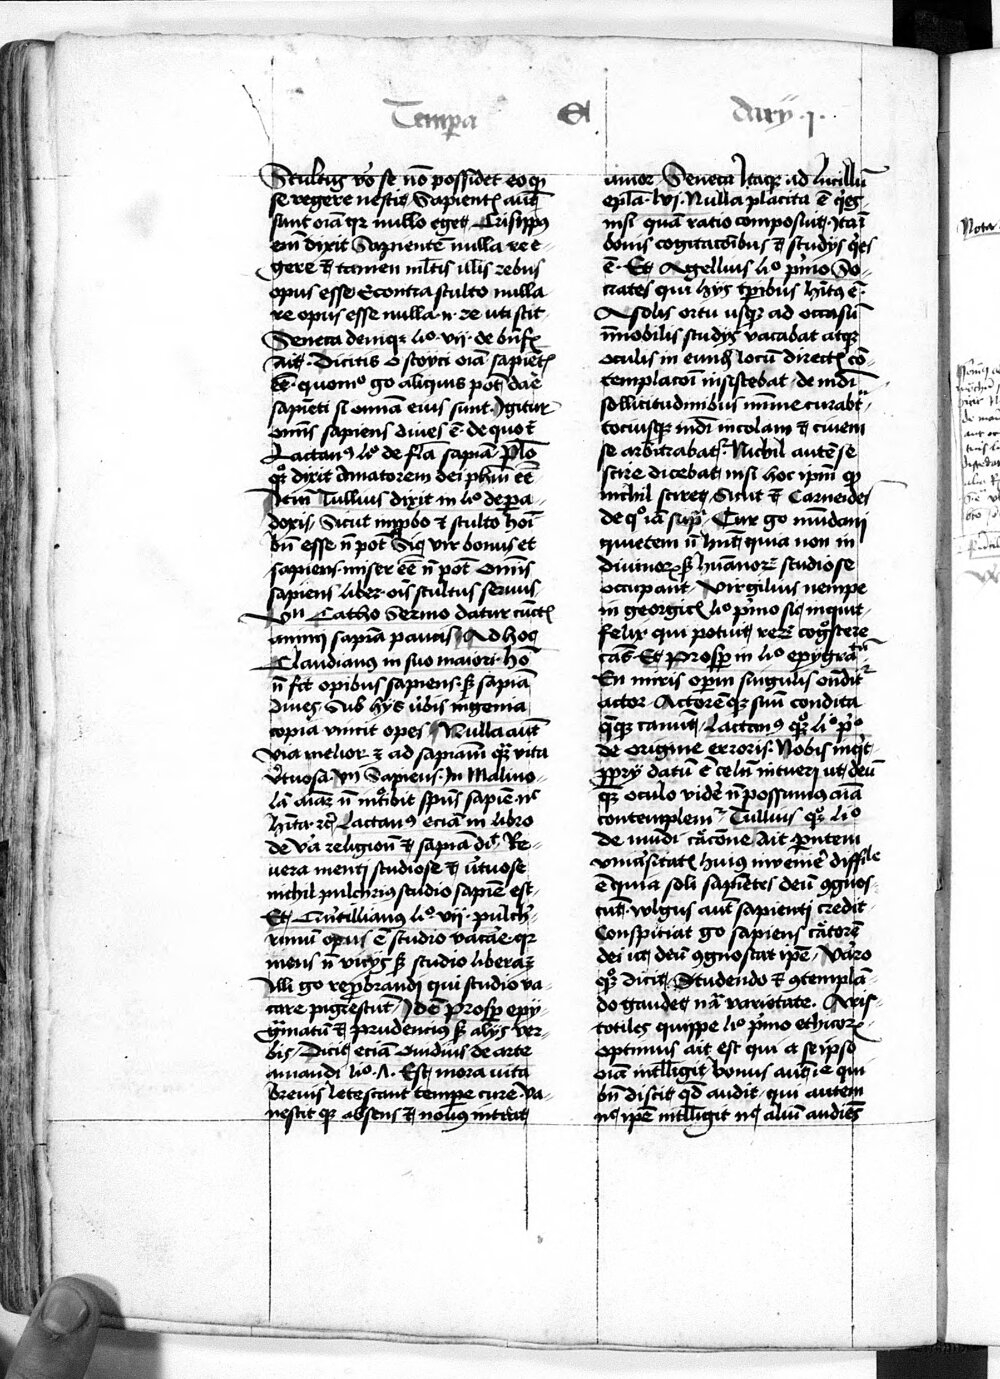 Tempa
A.
darÿ .I.
Stultus v̄o se nō possidet eo qꝫ
se regere nescit Sapient aut
sunt oīa qr nullo eget Crisippꝰ
em̄ dixit Sapientē nulla re e
gere & tamen ml̄tis illis rebus
opus esse Econtra stulto nulla
re opus esse nulla n̄ re uti scit
Seneca deniqꝫ li̊ · vii · de bn̄f
Ait · Dicitis o stoyci oīa sapiēt
ēē · quomº gͦ aliquis pot̄ daē
sapiēti si omnīa eius sunt · Igitur
omīs sapiens diues ē · de quo t̄
Lactanꝰ liº de fl̄a sapīa · Plo
qꝫ dixit amatorem dei phm̄ ēē
Item Tullius dixit in liº de pa
doxis Sicut īprobo & stulto hoī
bn̄ esse n̄ pot̄ Sic vir bonus et
sapiens miser ēē n̄ pot̄ Omīs
sapiens liber oīs stultus seruus
Vn̄ Catho Sermo datur cūct
animꝫ sapīa paucis Ad hoc
Claudianꝰ in suo maiori · hō
n̄ fc̄t opibus sapiens · sꝫ sapīa
diues Sub hys vbis ingenia
copia vincit opes Nulla aut̄
via melior & ad sapiam̄ qꝫ vita
v̄tuosa · Vn̄ Sapiens · In Maliuo
lā aīaꝫ n̄ int̄bit spūs sapiē nc̄
hīta · rc̄ Lactanꝰ eciā in libro
de v̄a religion̄ & sapīa dic̄ Re
uera menti studiose & v̄tuose
nichil pulchriꝰ studio sapiē est
Et Quintillianus liº vii · pulch̄
rimū opus ē studio vacāe · qr
mens n̄ vicys sꝫ studio liberaꝫ
Illi gͦ rep̄brandi qui studio va
care pigrescūt Idē Prosp̄ epy
gr̄matū & Prudencius sꝫ alÿs ver
bis Dicit eciā Ouidius de arte
amandi liº · A · Est mora vita
breuis letescant tempe cure Va
nescit qꝫ absens & nouꝰ intrat
amor Seneca Itaqꝫ ad lucillū
epl̄a · lvi · Nulla placita ē q̄es
nisi quā ratio composuit · Itaꝫ
bonis cogitacōibus & studÿs q̄es
ē · Et Agellius liº p̄mo So
crates qui hÿs tp̄ibus hīttꝰ ē ·
A solis ortu usqꝫ ad occasū
immobilis studÿs vacabat atqꝫ
oculis in eunꝫ locū direct cō
templacōi insistebat · de mdī
sollicitudinibus mīme curabt
tociusqꝫ mdī incolam & ciuem
se arbitrabat Nichil autē se
scire dicebat nisi hoc ipm̄ qꝫ
nichil sciret Sicut & Carneides
de qº iā sup̄ Cur gͦ mūdani
quietem n̄ hn̄t quia non in
diuinorꝫ sꝫ hūanorꝫ studiose
occupant Virgilius nempe
in georgic liº p̄mo sic inquit
felix qui potuit rerꝫ cogͦscere
cās Et Prosp̄ in liº epygrātū
En miris opm̄ singulis ondit
actor Actorēqꝫ suū condita
qꝫqꝫ canūt Lactanꝰ qꝫ liº pº
de origine erroris Nobis inqt
ꝓprÿ datū ē celū intueri ut deū
qꝫ oculo videē n̄ possumꝰ aīa
contemplem̄ Tullius qꝫ liº
de mūdi cr̄acōne Ait Pntem
vniūsitat huiꝰ inuenire difficile
ē quia soli sapiētes deū ꝯgnos
cūt · wlgus aut̄ sapienti credit
Conspiciat gͦ sapiens cr̄atorē
dei ut deū ꝯgnoscat ipē Varo
qꝫ dicit Studendo & ꝯtemplā
do gaudet nā varietate · Aris
totiles quippe liº p̄mo ethicorꝫ
optimus ait est qui a seipso
oīa intl̄ligit bonus aut ē qui
bn̄ discit qd̄ audit qui autem
nc̄ ipē intl̄ligit nc̄ aliū audiēs
Nota